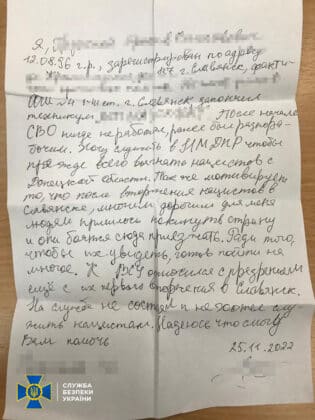 Я,
12.08.96 г.р., зарегистрирован по адресу
г. Славянск, факти-
г. Славянск закончил
техникум После начала
СВО нигде не работал, ранее был разнора-
бочим. Хочу служить в НМДНР чтобы
прежде всего выгнать нацистов с
Донецкой области. Также мотивирует
то, что после вторжения нацистов в
Славянске, многим дорогим для меня
людям пришлось покинуть страну
и они боятся сюда приезжать. Ради того,
чтобы их увидеть, готов пойти на
многое. К ВСУ относился с презрением
ещё с их первого вторжения в Славянск.
На службе не состоял и не хотел слу-
жить нацистам. Надеюсь что смогу
Вам помочь
25.11.2022
СЛУЖБА
БЕЗПЕКИ
УКРАЇНИ